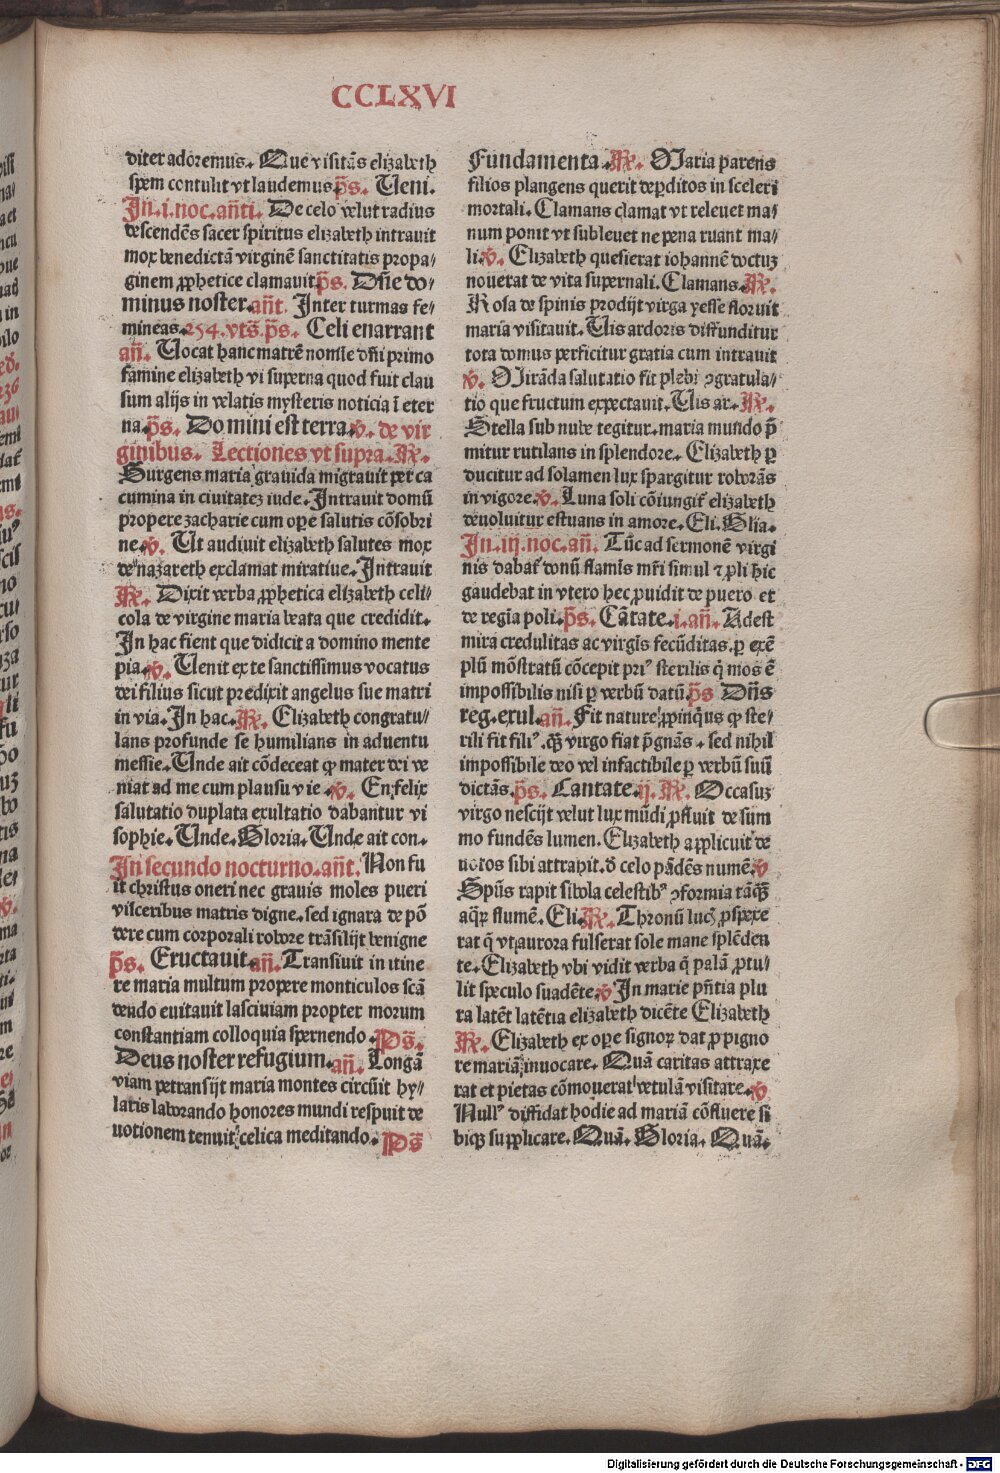 CCLXVI
diter adoremus. Que visitās elizabeth
spem contulit vt laudemus p̄s. Ueni.
In .i. noc. añti. De celo velut radius
descendēs sacer spiritus elizabeth intrauit
mox benedictā virginē sanctitatis propa/
ginem ꝓphetice clamauit p̄s. Dñe do/
minus noster. añt. Inter turmas fe/
mineas. 254. vts̄. p̄s. Celi enarrant
an̄. Uocat hanc matrē nomīe dñi primo
famine elizabeth vi superna quod fuit clau
sum alijs in velatis mysteris noticia ī eter
na. p̄s. Domini est terra. v̄. de vir
ginibus. Lectiones vt supra. R̄.
Surgens maria grauida migrauit per ca
cumina in ciuitatez iude. Intrauit domū
propere zacharie cum ope salutis cōsobri
ne. v̄. Ut audiuit elizabeth salutes mox
de nazareth exclamat miratiue. Intrauit
R̄. Dixit verba ꝓphetica elizabeth celi/
cola de virgine maria beata que credidit.
In hac fient que didicit a domino mente
pia. v̄. Uenit ex te sanctissimus vocatus
dei filius sicut predixit angelus sue matri
in via. In hac. R̄. Elizabeth congratu/
lans profunde se humilians in aduentu
messie. Unde ait cōdeceat ꝙ mater dei ve
niat ad me cum plausu vie. v̄. En felix
salutatio duplata exultatio dabantur vi
sophie. Unde. Gloria. Unde ait con.
In secundo nocturno. añt. Non fu
it christus oneri nec grauis moles pueri
visceribus matris digne. sed ignara de pō
dere cum corporali robore trāsilijt benigne
p̄s. Eructauit. an̄. Transiuit in itine
re maria multum propere monticulos scā
dendo euitauit lasciuiam propter morum
constantiam colloquia spernendo. Ps̄.
Deus noster refugium. an̄. Longā
viam petransijt maria montes circūit hy/
laris laborando honores mundi respuit de
uotionem tenuit celica meditando. Ps̄
Fundamenta. R̄. Maria parens
filios plangens querit deꝑditos in sceleri
mortali. Clamans clamat vt releuet ma/
num ponit vt subleuet ne pena ruant ma/
li. v̄. Elizabeth quesierat iohannē doctuz
nouerat de vita supernali. Clamans. R̄.
Rosa de spinis prodijt virga yesse floruit
maria visitauit. Uis ardoris diffunditur
tota domus perficitur gratia cum intrauit
v̄. Mirāda salutatio fit plebi ꝯgratula/
tio que fructum expectauit. Uis ar. R̄.
Stella sub nube tegitur. maria mundo p̄
mitur rutilans in splendore. Elizabeth ꝑ
ducitur ad solamen lux spargitur roborās
in vigore. v̄. Luna soli cōiungit̄ elizabeth
deuoluitur estuans in amore. Eli. Glia.
In .iij. noc. an̄. Tūc ad sermonē virgi
nis dabat̄ donū flamīs mr̄i simul ⁊ ꝓli hic
gaudebat in vtero hec ꝓuidit de puero et
de regīa poli. p̄s. Cātate. i. an̄. Adest
mira credulitas ac virgīs fecūditas. ꝑ exē
plū mōstratū cōcepit prīꝰ sterilis q̄ mos ē
impossibilis nisi ꝑ verbū datū p̄s Dñs
reg. exul. an̄. Fit nature ꝓpinq̄us ꝙ ste/
rili fit filiꝰ. qꝫ virgo fiat p̄gnās. sed nihil
impossibile deo vel infactibile ꝑ verbū suū
dictās. p̄s. Cantate. ij. R̄. Occasuz
virgo nescijt velut lux mūdi ꝓfluit de sum
mo fundēs lumen. Elizabeth applicuit de
uotos sibi attrahit. ð celo pādēs numē. v̄
Spūs rapit sibola celestibꝰ ꝯformia tāqꝫ
aq̄ꝝ flumē. Eli. R̄. Thronū lucꝭ ꝓspexe
rat q̄ vt aurora fulserat sole mane splēden
te. Elizabeth vbi vidit verba q̄ palā ꝓtu/
lit speculo suadēte. v̄ In marie pn̄tia plu
ra latēt latētia elizabeth dicēte Elizabeth
R̄. Elizabeth ex ope signoꝝ dat ꝓ pigno
re mariā inuocare. Quā caritas attraxe
rat et pietas cōmouerat vetulā visitare. v̄
Nullꝰ diffidat hodie ad mariā cōfluere si
biqꝫ supplicare. Quā. Gloria. Quā.
Digitalisierung gefördert durch die Deutsche Forschungsgemeinschaft - DFG